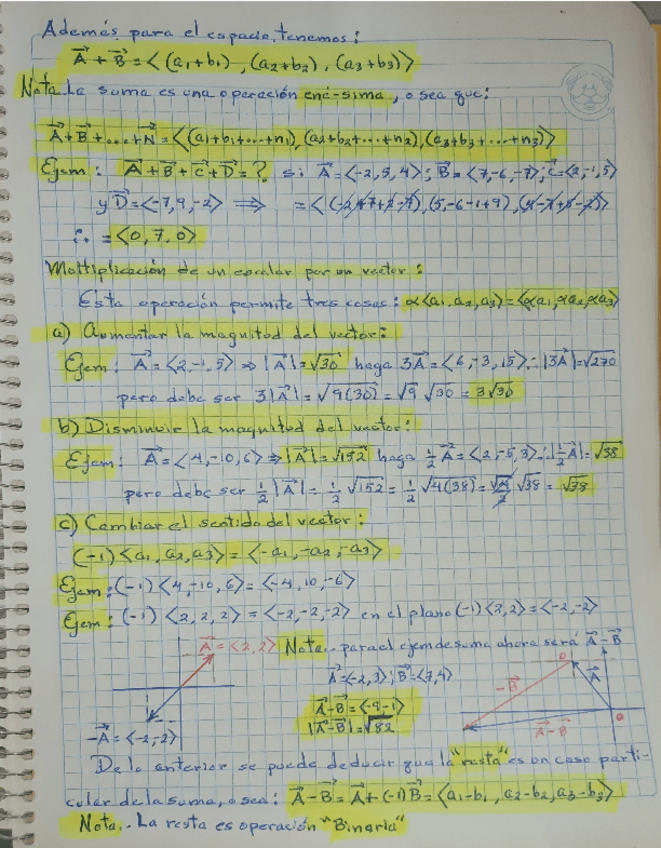 Además para el espacio, tenemos:
A⃗ + B⃗ = <(a1+b1), (a2+b2), (a3+b3)>
Nota. La suma es una operación ené-sima, o sea que:
A⃗+B⃗+...+N⃗ = <(a1+b1+...+n1), (a2+b2+...+n2), (a3+b3+...+n3)>
Ejem: A⃗+B⃗+C⃗+D⃗=? si A⃗=<-2,5,4>; B⃗=<7,-6,-7>; C⃗=<2,-1,5>
y D⃗=<-7,9,-2> ⟹ =<(-2+7+2-7),(5-6-1+9),(4-7+5-2)>
∴ = <0,7,0>
Multiplicación de un escalar por un vector:
Esta operación permite tres cosas: α<a1,a2,a3>=<αa1,αa2,αa3>
a) Aumentar la magnitud del vector:
Ejem: A⃗=<2,-1,5> ⇒ |A⃗|=√30 haga 3A⃗=<6,-3,15> ∴ |3A⃗|=√270
pero debe ser 3|A⃗|=√9(30)=√9 √30=3√30
b) Disminuir la magnitud del vector:
Ejem: A⃗=<4,-10,6> ⇒ |A⃗|=√152 haga 1/2 A⃗=<2,-5,3> ∴ |1/2 A⃗|=√38
pero debe ser 1/2 |A⃗|=1/2 √152=1/2 √4(38)=√4/2 √38=√38
c) Cambiar el sentido del vector:
(-1)<a1,a2,a3>=<-a1,-a2,-a3>
Ejem: (-1)<4,-10,6>=<-4,10,-6>
Ejem: (-1)<2,2,2>=<-2,-2,-2> en el plano (-1)<2,2>=<-2,-2>
A⃗=<2,2> Nota.. para el ejem de suma ahora será A⃗-B⃗
A⃗=<-2,3>; B⃗=<7,4>
-B⃗
A⃗
A⃗-B⃗=<-9,-1>
|A⃗-B⃗|=√82
A⃗-B⃗
-A⃗=<-2,-2>
De lo anterior se puede deducir que la "resta" es un caso parti-
cular de la suma, o sea: A⃗-B⃗=A⃗+(-1)B⃗=<a1-b1, a2-b2, a3-b3>
Nota.. La resta es operación "Binaria"